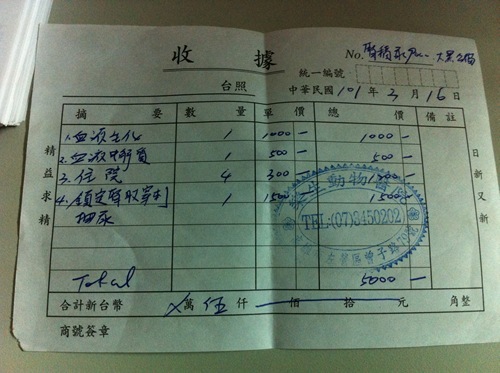 收 據
No.
統一編號
台照 中華民國 101年 3月 16日
摘 要 數 量 單 價 總 價 備 註
1. 血液生化 1 1000 — 1000 —
2. 血液 1 500 — 500 —
3. 住 院 4 300
4. 鎮定 穿刺 1 1500
抽尿
Total 5000 —
合計新台幣 萬 伍 仟 佰 拾 元 角整
商號簽章
精益求精
日新又新
動物醫
TEL:(07)3450202
左營區曾子路